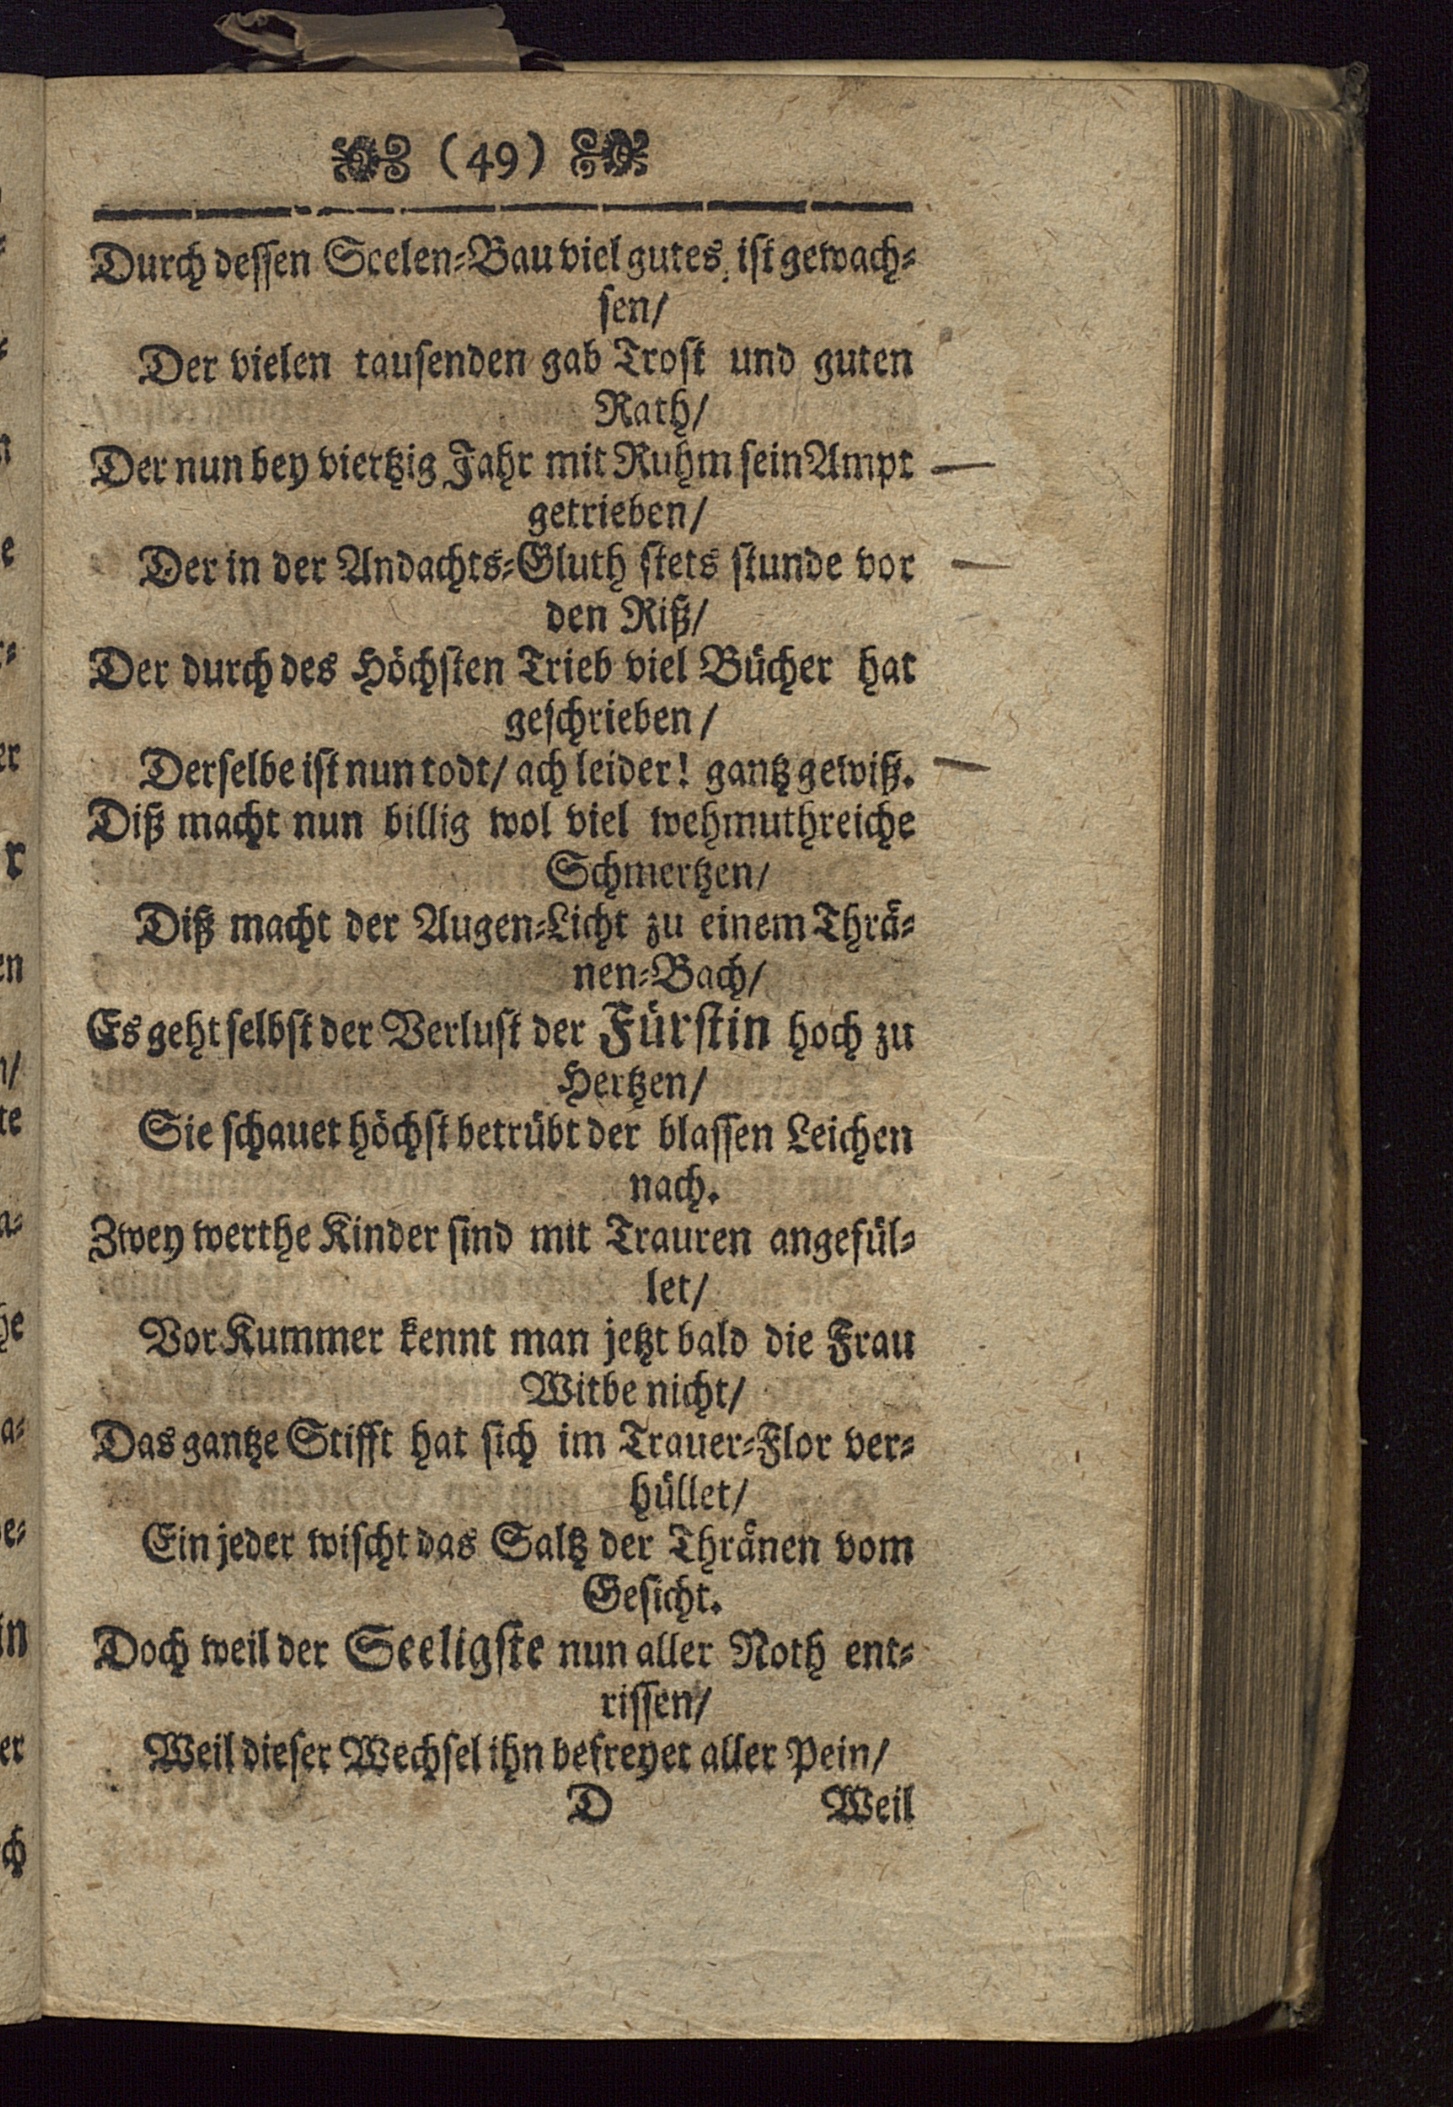 (49)
Durch dessen Seelen-Bau viel gutes ist gewach-
sen/
Der vielen tausenden gab Trost und guten
Rath/
Der nun bey viertzig Jahr mit Ruhm sein Ampt
getrieben/
Der in der Andachts-Gluth stets stunde vor
den Riß/
Der durch des Höchsten Trieb viel Bücher hat
geschrieben/
Derselbe ist nun todt/ ach leider! gantz gewiß.
Diß macht nun billig wol viel wehmuthreiche
Schmertzen/
Diß macht der Augen-Licht zu einem Thrä-
nen-Bach/
Es geht selbst der Verlust der Fürstin hoch zu
Hertzen/
Sie schauet höchst betrübt der blassen Leichen
nach.
Zwey werthe Kinder sind mit Trauren angefül-
let/
Vor Kummer kennt man jetzt bald die Frau
Witbe nicht/
Das gantze Stifft hat sich im Trauer-Flor ver-
hüllet/
Ein jeder wischt das Saltz der Thränen vom
Gesicht.
Doch weil der Seeligste nun aller Noth ent-
rissen/
Weil dieser Wechsel ihn befreyet aller Pein/
D Weil